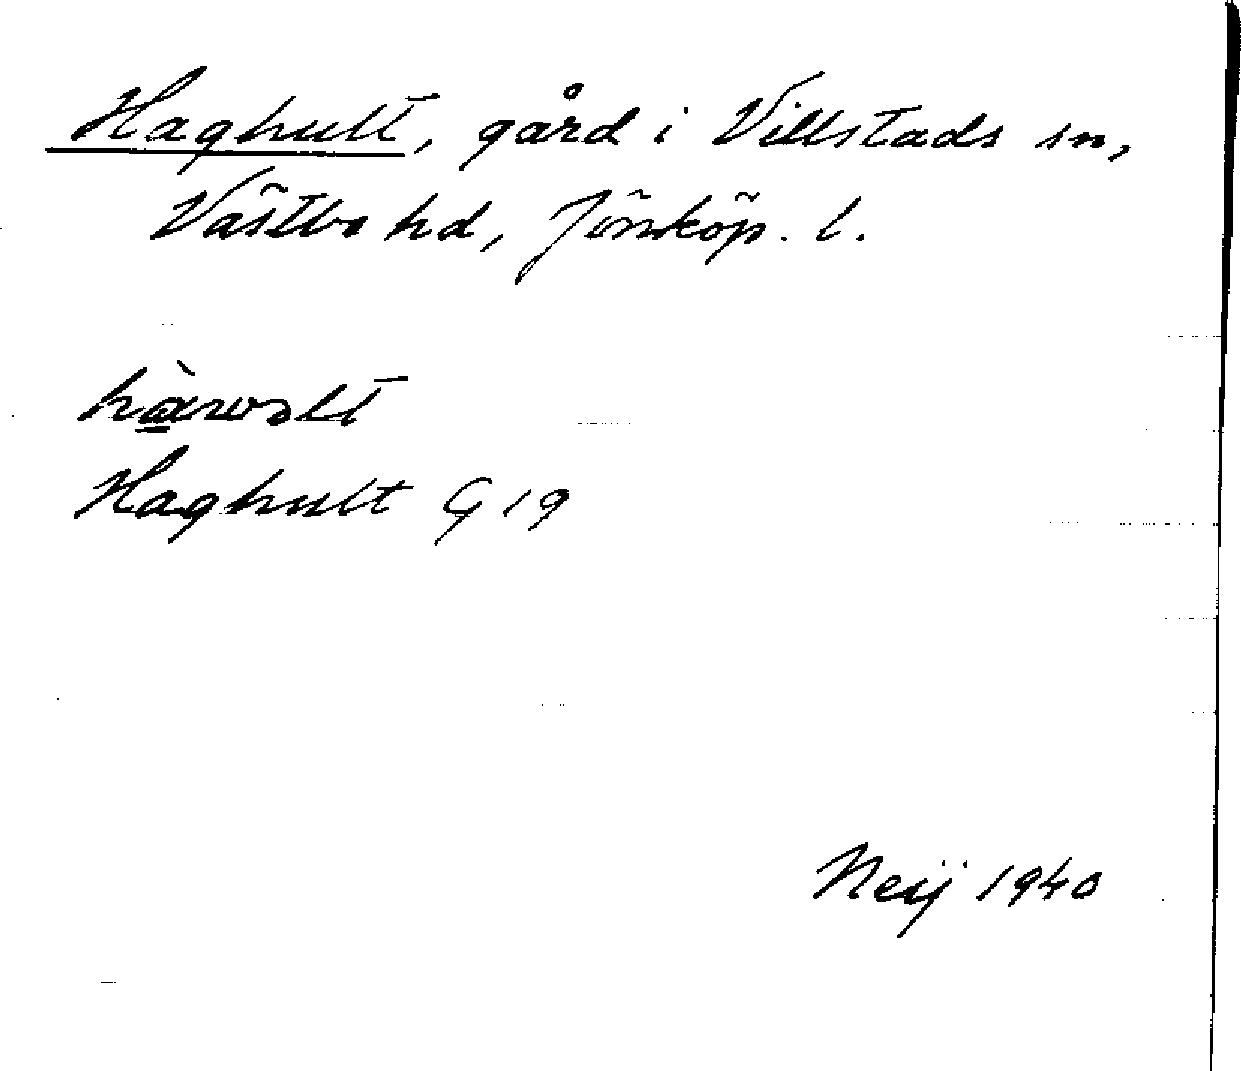 Haghult, gård i Villstads sn,
Västbo hd, Jönköp. l.
hàwəlt
Haghult G 19
Neij 1940